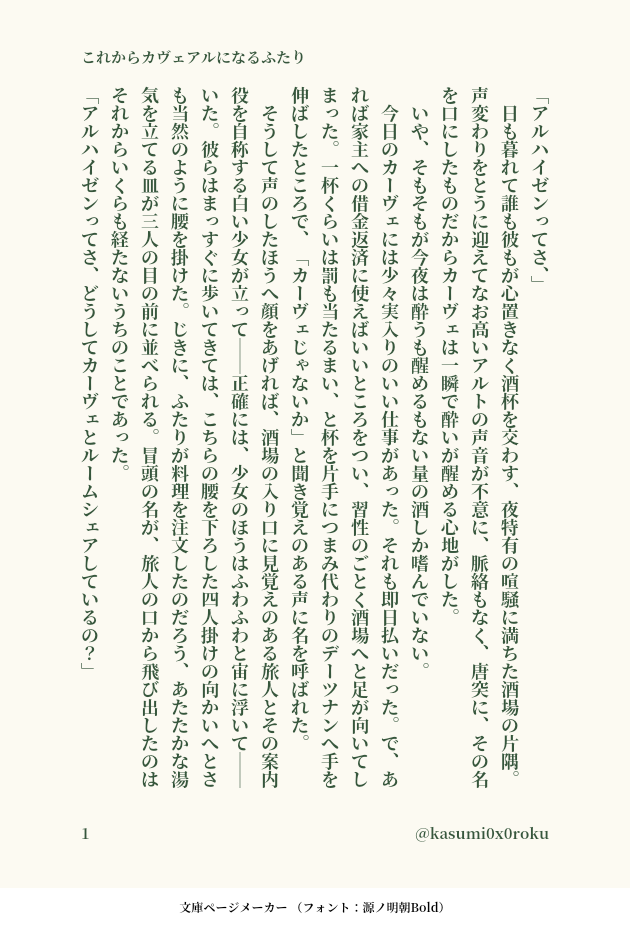 これからカヴェアルになるふたり
「アルハイゼンってさ、」
　日も暮れて誰も彼もが心置きなく酒杯を交わす、夜特有の喧騒に満ちた酒場の片隅。
声変わりをとうに迎えてなお高いアルトの声音が不意に、脈絡もなく、唐突に、その名
を口にしたものだからカーヴェは一瞬で酔いが醒める心地がした。
　いや、そもそもが今夜は酔うも醒めるもない量の酒しか嗜んでいない。
　今日のカーヴェには少々実入りのいい仕事があった。それも即日払いだった。で、あ
れば家主への借金返済に使えばいいところをつい、習性のごとく酒場へと足が向いてし
まった。一杯くらいは罰も当たるまい、と杯を片手につまみ代わりのデーツナンへ手を
伸ばしたところで、「カーヴェじゃないか」と聞き覚えのある声に名を呼ばれた。
　そうして声のしたほうへ顔をあげれば、酒場の入り口に見覚えのある旅人とその案内
役を自称する白い少女が立って――正確には、少女のほうはふわふわと宙に浮いて――
いた。彼らはまっすぐに歩いてきては、こちらの腰を下ろした四人掛けの向かいへとさ
も当然のように腰を掛けた。じきに、ふたりが料理を注文したのだろう、あたたかな湯
気を立てる皿が三人の目の前に並べられる。冒頭の名が、旅人の口から飛び出したのは
それからいくらも経たないうちのことであった。
「アルハイゼンってさ、どうしてカーヴェとルームシェアしているの？」
1
@kasumi0x0roku
文庫ページメーカー（フォント：源ノ明朝Bold）